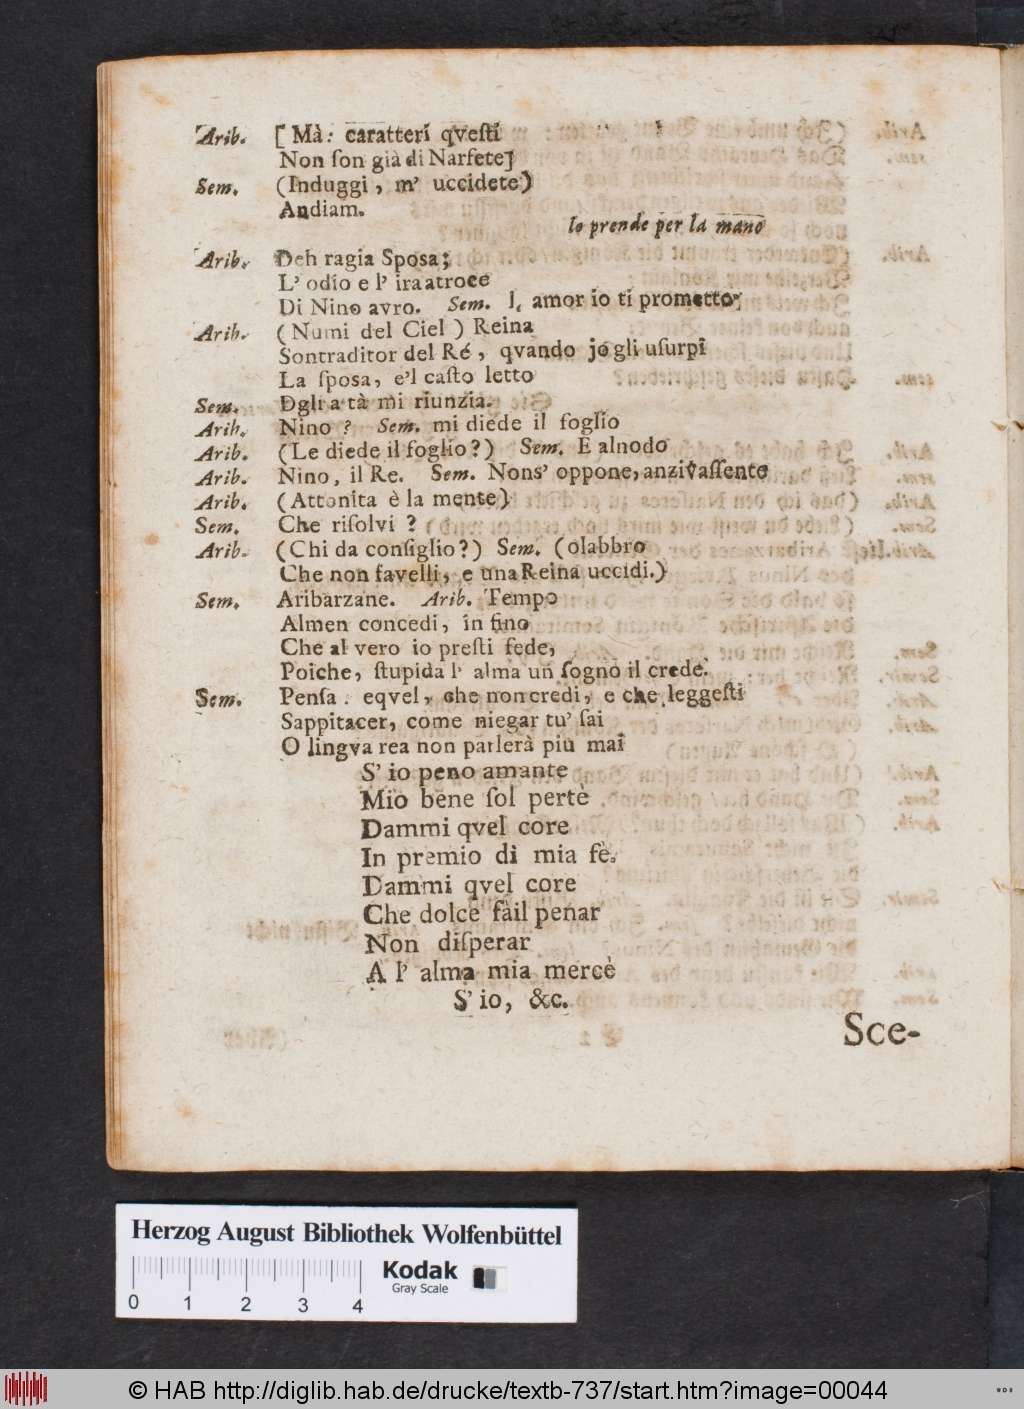 Arib. [ Mà: caratteri qveſti
Non ſon già di Narſete]
Sem. (Induggi, m' uccidete)
Andiam.
lo prende per la mano
Arib. Deh ragia Sposa;
L' odio e l' ira atroce
Di Nino avro. Sem. l, amor io ti prometto;
Arib. (Numi del Ciel) Reina
Sontraditor del Ré, qvando jo gli uſurpi
La ſposa, e'l caſto letto
Sem. Dgli a tà mi riunzia.
Arib. Nino? Sem. mi diede il foglio
Arib. (Le diede il foglio?) Sem. E alnodo
Arib. Nino, il Re. Sem. Nons' oppone, anzi vaſſente
Arib. (Attonita è la mente)
Sem. Che riſolvi?
Arib. (Chi da conſiglio?) Sem. (olabbro
Che non favelli, e una Reina uccidi.)
Sem. Aribarzane. Arib. Tempo
Almen concedi, in fino
Che al vero io preſti fede,
Poiche, ſtupida l' alma un ſogno il crede.
Sem. Penſa. eqvel, che non credi, e che leggeſti
Sappitacer, come niegar tu' ſai
O lingva rea non parlerà più mai
S' io peno amante
Mio bene ſol pertè
Dammi qvel core
In premio di mia fè.
Dammi qvel core
Che dolce fàil penar
Non diſperar
A l' alma mia mercè
S' io, &c.
Sce-
Herzog August Bibliothek Wolfenbüttel
0 1 2 3 4
Kodak
Gray Scale
© HAB http://diglib.hab.de/drucke/textb-737/start.htm?image=00044